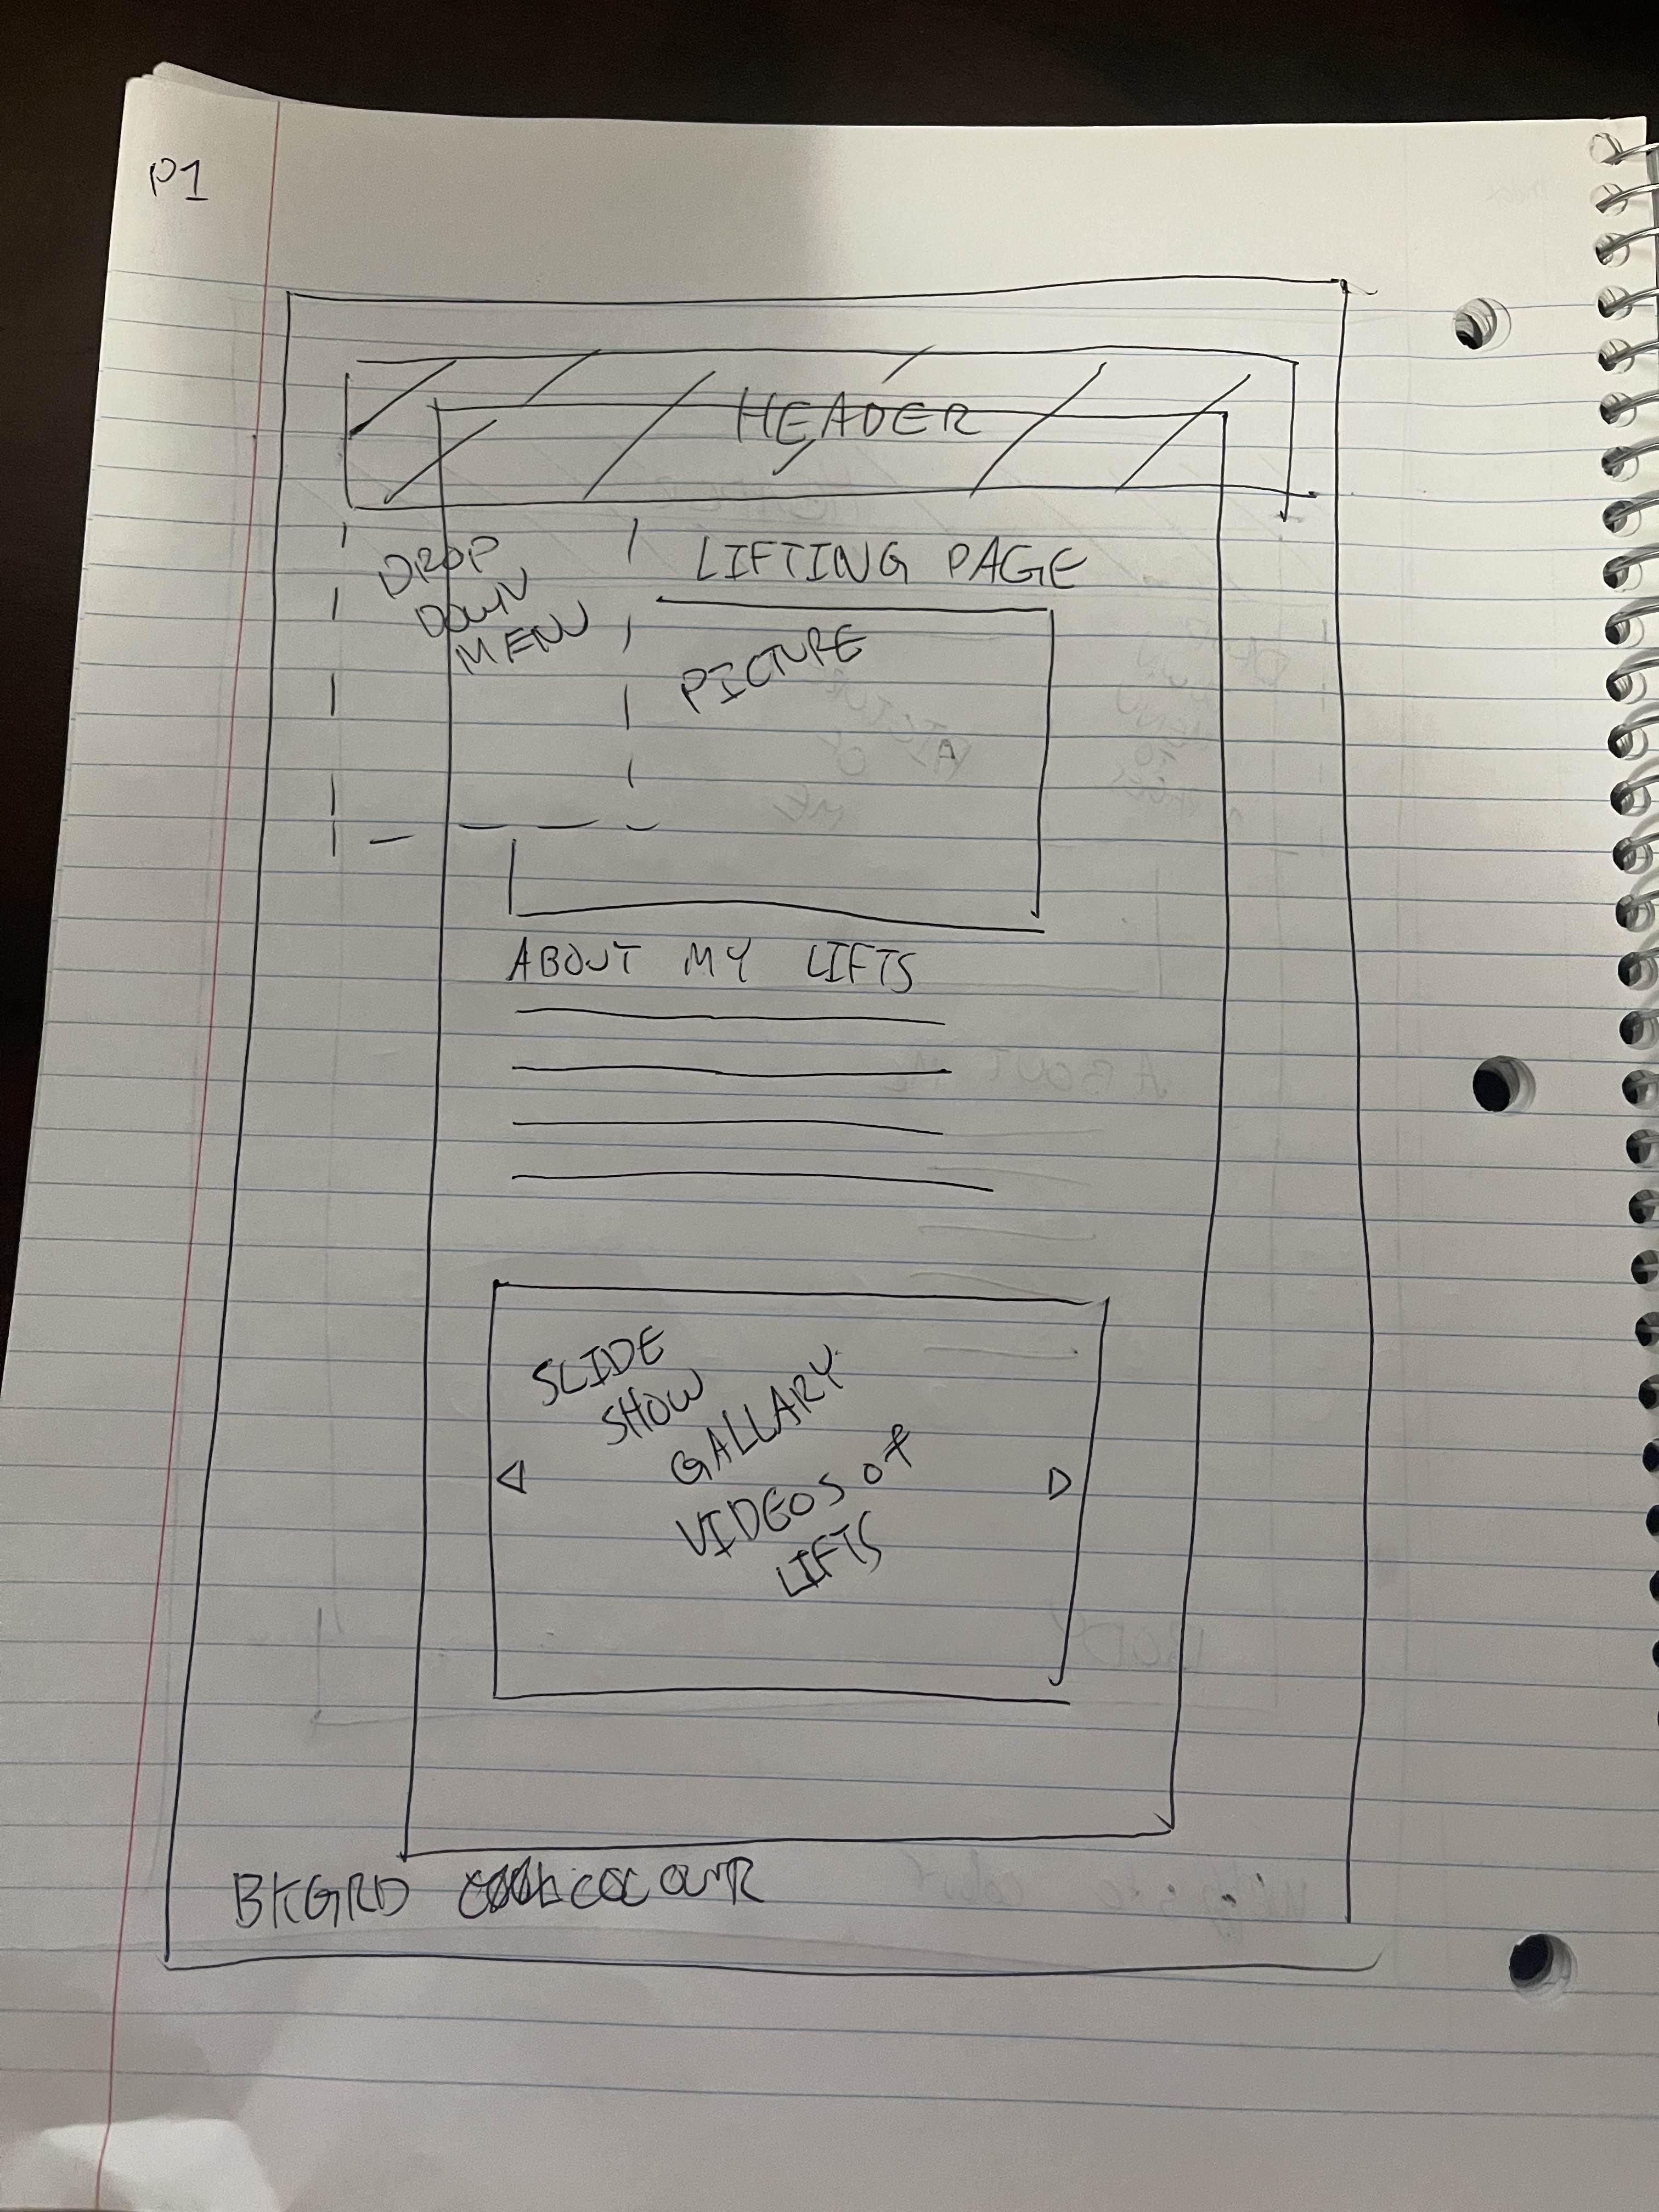 P1
HEADER
DROP
DOWN
MENU
LIFTING PAGE
PICTURE
ABOUT MY LIFTS
SLIDE
SHOW
GALLARY
VIDEOS OF
LIFTS
BKGRD COLOUR